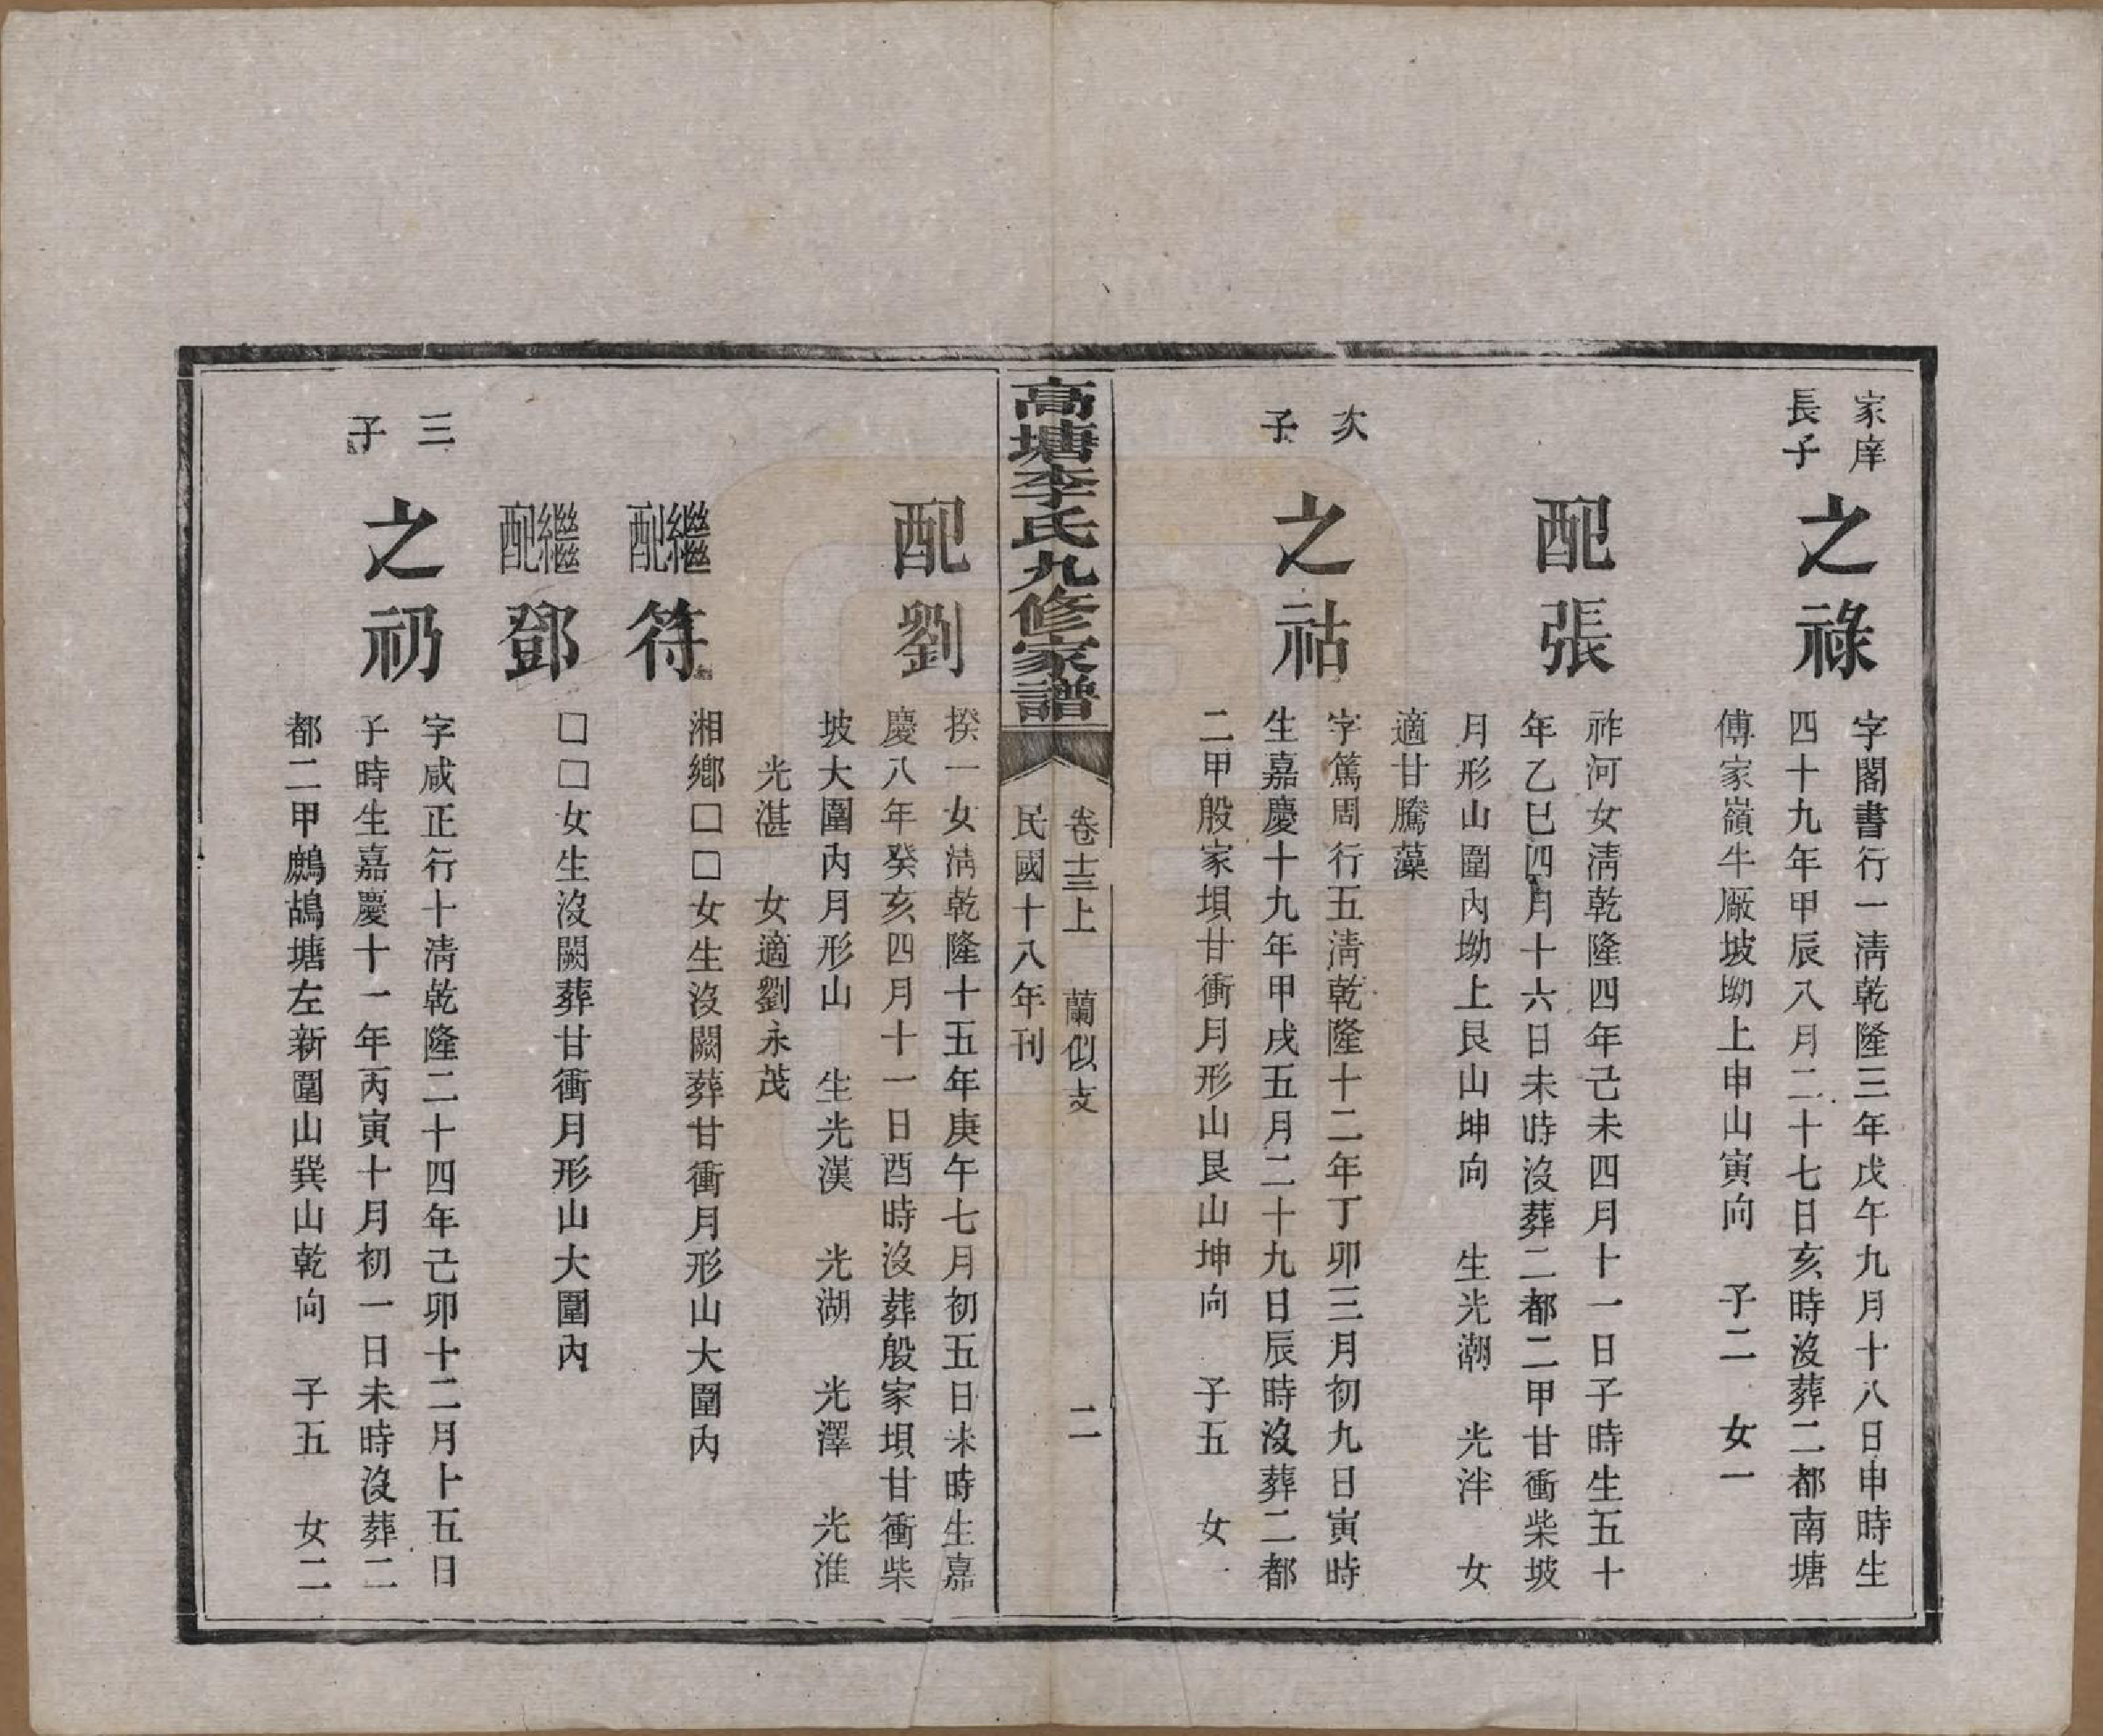 家庠
長子
之祿
字閣書行一淸乾隆三年戊午九月十八日申時生
四十九年甲辰八月二十七日亥時沒葬二都南塘
傅家嶺牛厰坡坳上申山寅向　子二　女一
配張
祚河女淸乾隆四年己未四月十一日子時生五十
年乙巳四月十六日未時沒葬二都二甲甘衝柴坡
月形山圍內坳上艮山坤向　生光潮　光泮　女
適甘騰藻
次
子
之祜
字篤周行五淸乾隆十二年丁卯三月初九日寅時
生嘉慶十九年甲戌五月二十九日辰時沒葬二都
二甲殷家垻甘衝月形山艮山坤向　子五　女
高塘李氏九修家譜
卷十三上　蘭似支　二
民國十八年刊
配劉
揆一女淸乾隆十五年庚午七月初五日未時生嘉
慶八年癸亥四月十一日酉時沒葬殷家垻甘衝柴
坡大圍內月形山　生光漢　光湖　光澤　光淮
光湛　女適劉永茂
繼配符
湘鄕□□女生沒闕葬甘衝月形山大圍內
繼配鄧
□□女生沒闕葬甘衝月形山大圍內
三
子
之礽
字咸正行十淸乾隆二十四年己卯十二月十五日
子時生嘉慶十一年丙寅十月初一日未時沒葬二
都二甲鷓鴣塘左新圍山巽山乾向　子五　女二